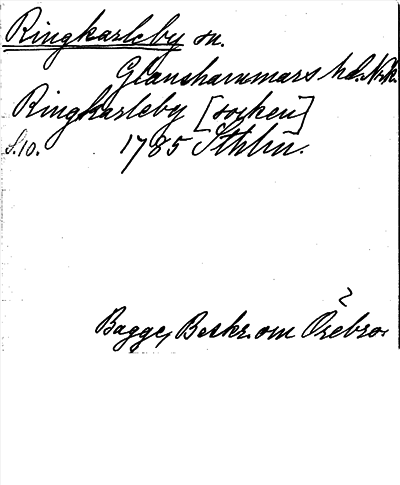 Ringkarleby sn.
Glanshammars hd. Nrk.
Ringkarleby [socken]
S.10. 1785 Sthlm.
Bagge, Beskr. om Örebro